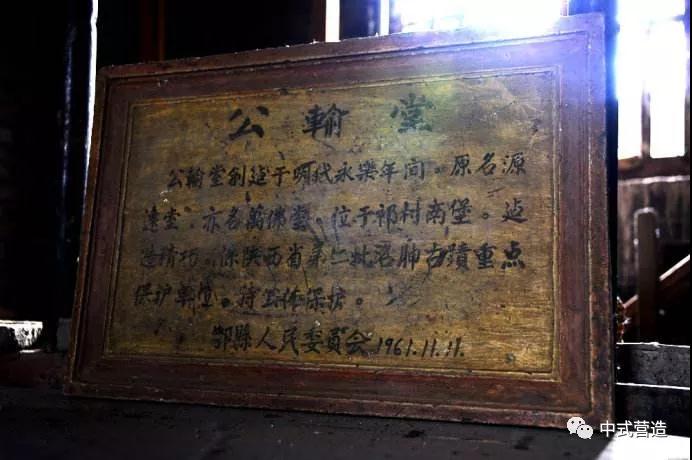 公輸堂
公輸堂創建于明代永樂年間。原名源
遠堂。亦名萬佛堂。位于祁村南堡。
造精巧。係陝西省第二批名勝古蹟重点
保护單位。特立保护。
鄠縣人民委員會 1961.11.11.
中式营造